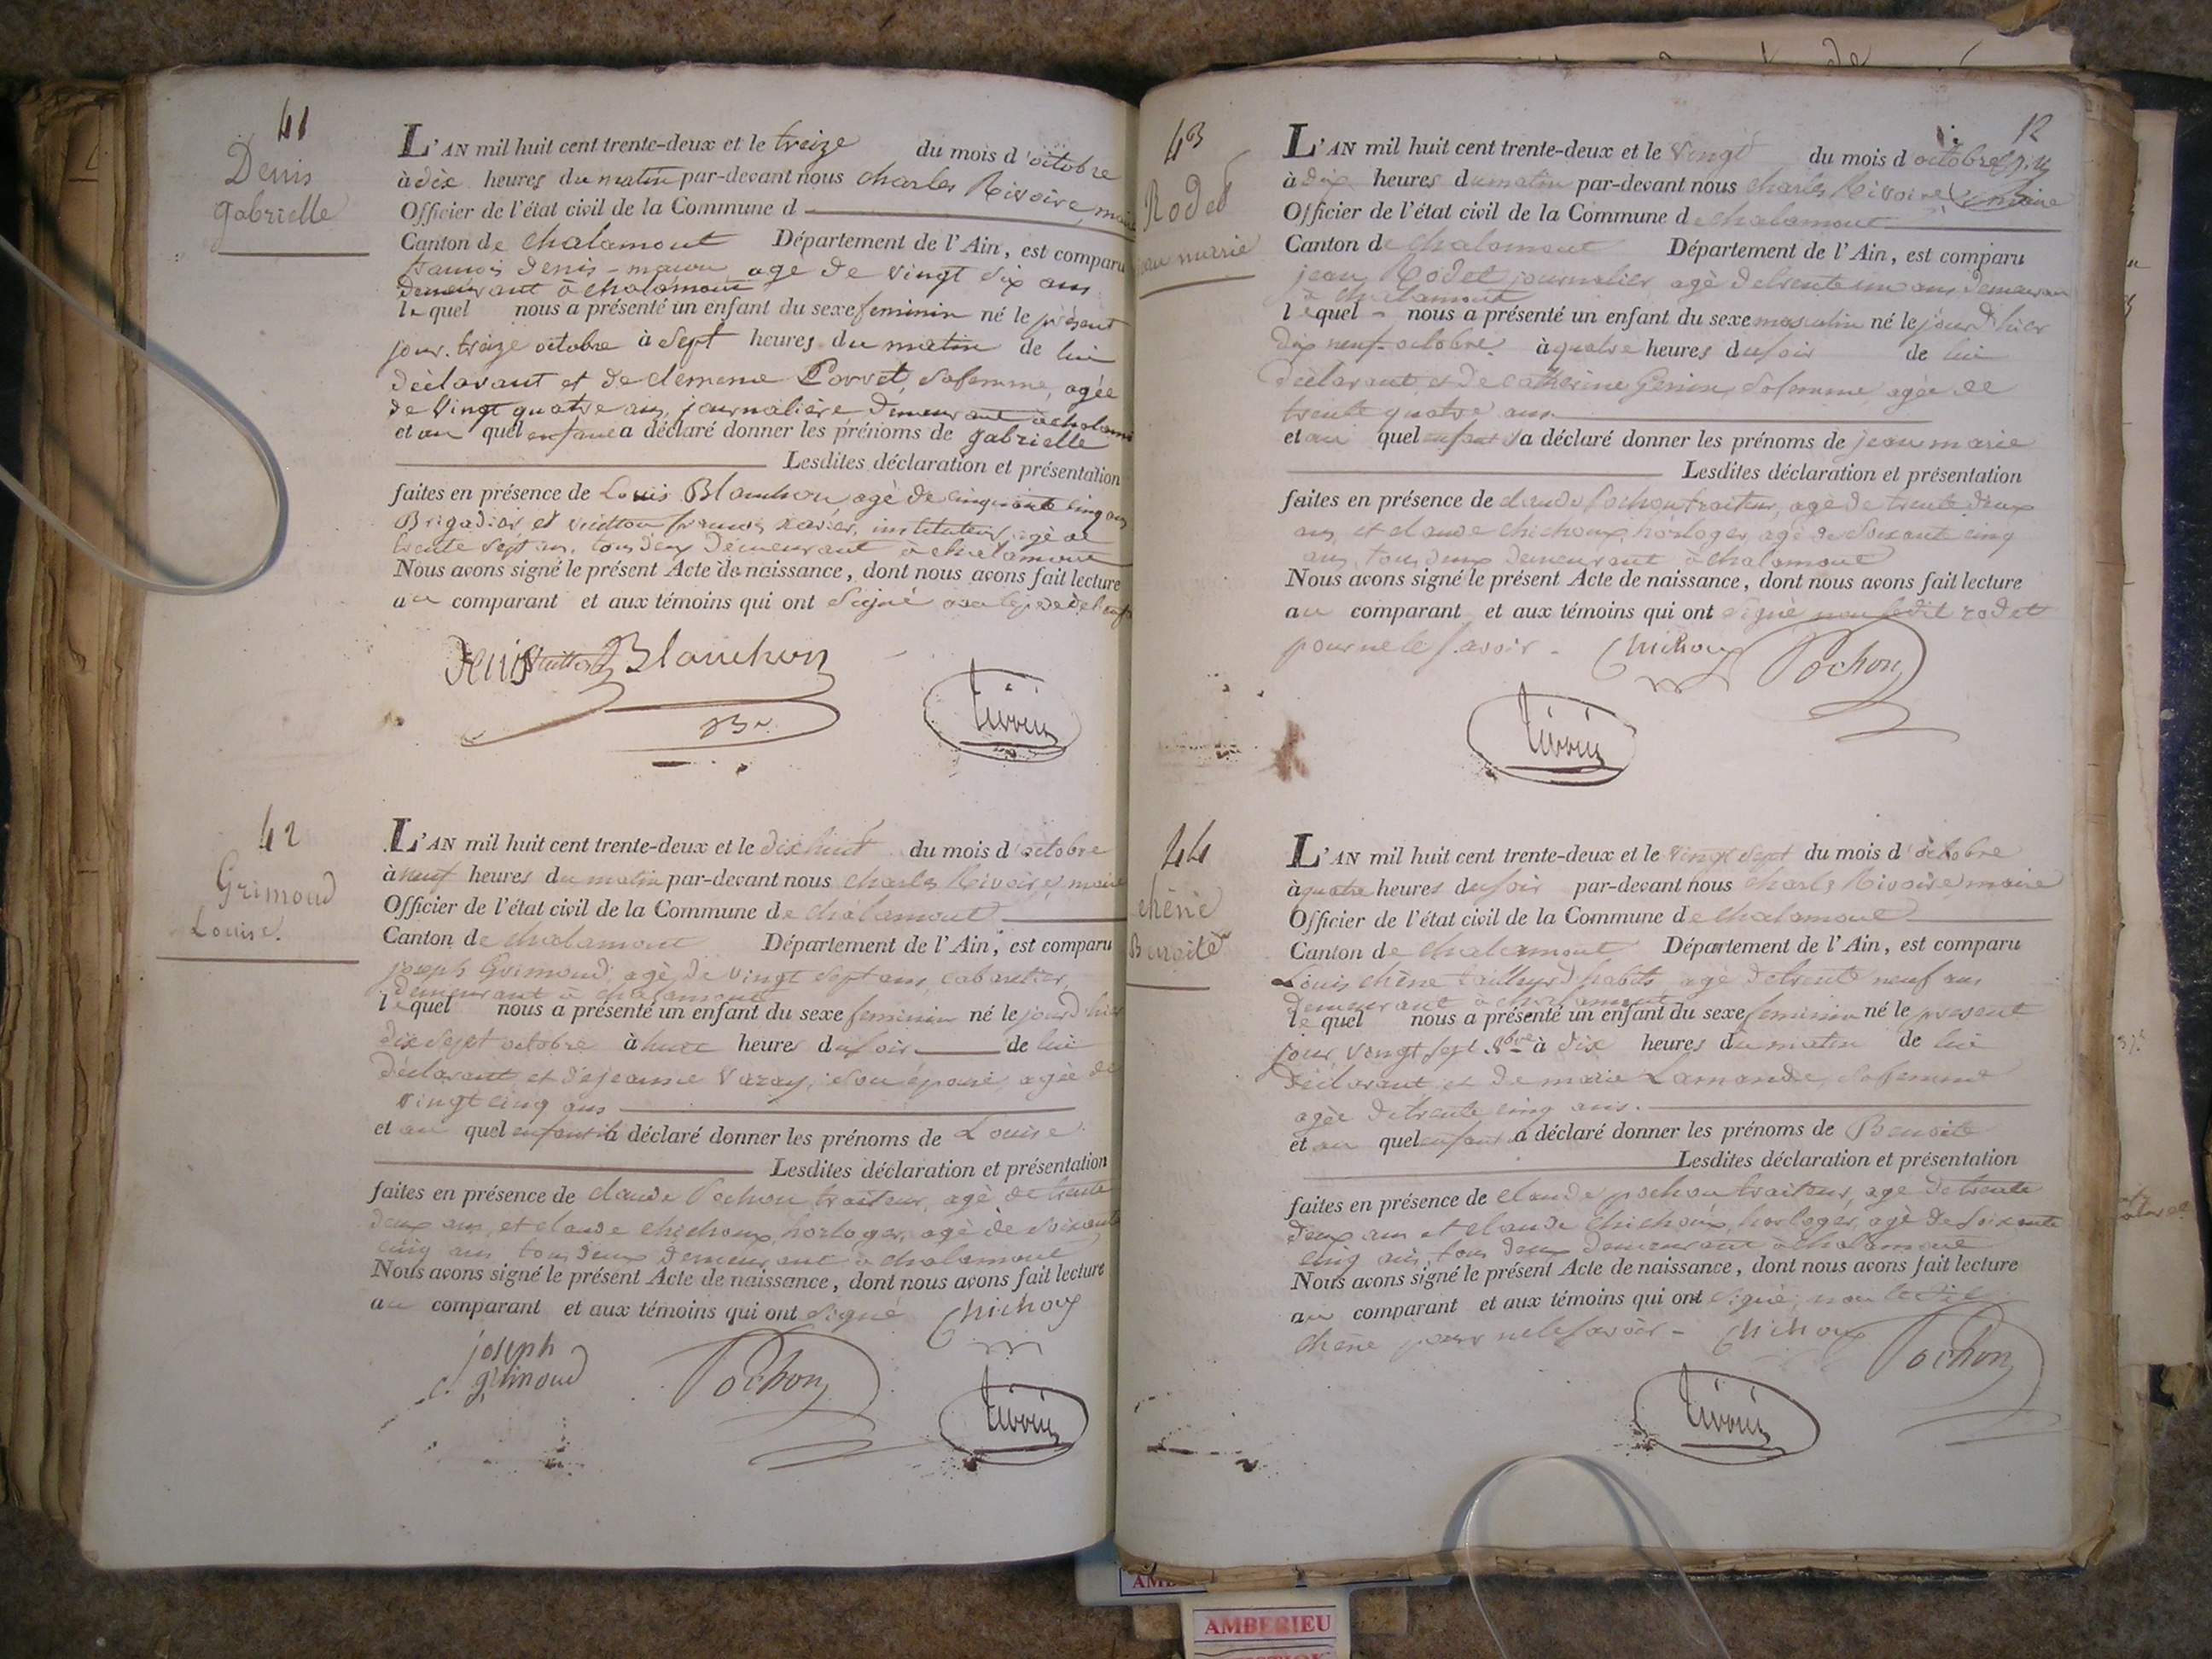 41
Denis
gabrielle
L'AN mil huit cent trente-deux et le treize du mois d'octobre
à dix heures du matin par-devant nous charles Rivoire, maire
Officier de l'état civil de la Commune d
Canton de chalamont Département de l'Ain, est comparu
francois Denis - macon, age de vingt six ans
demeurant à chalamont
lequel nous a présenté un enfant du sexe feminin né le présent
jour. treize octobre à sept heures du matin de lui
déclarant et de clemence Porret, sa femme, agée
de vingt quatre ans, journalière demeurant à chalam
et au quel enfant a déclaré donner les prénoms de gabrielle
Lesdites déclaration et présentation
faites en présence de Louis Blanchon agé de cinquante cinq ans
Brigadier et francois xavier, instituteur, agé de
trente sept ans, tous deux demeurant à chalamont
Nous avons signé le présent Acte de naissance, dont nous avons fait lecture
au comparant et aux témoins qui ont signé
Denis Blanchon
Br
Rivoire
42
Grimoud
Louise.
L'AN mil huit cent trente-deux et le dix huit du mois d'octobre
à neuf heures du matin par-devant nous charles Rivoire, maire
Officier de l'état civil de la Commune de chalamont
Canton de chalamont Département de l'Ain, est comparu
joseph Grimoud, agé de vingt sept ans, cabaretier,
demeurant à chalamont
lequel nous a présenté un enfant du sexe feminin né le jour d'hier
dix sept octobre à heures du soir de lui
déclarant et de jeanne Varay, son épouse, agée de
vingt cinq ans
et au quel enfant il a déclaré donner les prénoms de Louise
Lesdites déclaration et présentation
faites en présence de claude Pochon traiteur, agé de trente
deux ans, et claude chichoux, horloger, agé de soixante
cinq ans tous deux demeurant à chalamont
Nous avons signé le présent Acte de naissance, dont nous avons fait lecture
au comparant et aux témoins qui ont signé Chichoux
joseph
grimoud Pochon Rivoire
12
43
Rodet
jean marie
L'AN mil huit cent trente-deux et le vingt du mois d'octobre
à dix heures du matin par-devant nous charles Rivoire maire
Officier de l'état civil de la Commune de chalamont
Canton de chalamont Département de l'Ain, est comparu
jean Rodet journalier agé de trente un ans demeurant
à chalamont
lequel nous a présenté un enfant du sexe masculin né le jour d'hier
dix neuf octobre à quatre heures du soir de lui
déclarant et de catherine Genin, sa femme agée de
trente quatre ans
et au quel enfant a déclaré donner les prénoms de jean marie
Lesdites déclaration et présentation
faites en présence de claude Pochon traiteur, agé de trente deux
ans, et claude chichoux, horloger, agé de soixante cinq
ans, tous deux demeurant à chalamont
Nous avons signé le présent Acte de naissance, dont nous avons fait lecture
au comparant et aux témoins qui ont signé non ledit rodet
pour ne le savoir - Chichoux Pochon
Rivoire
44
chêne
Benoite
L'AN mil huit cent trente-deux et le vingt sept du mois d'octobre
à quatre heures du soir par-devant nous charles Rivoire maire
Officier de l'état civil de la Commune de chalamont
Canton de chalamont Département de l'Ain, est comparu
Louis chêne tailleur d'habits agé de trente neuf ans
demeurant à chalamont
lequel nous a présenté un enfant du sexe feminin né le present
jour vingt sept 8bre à dix heures du matin de lui
déclarant et de marie Lamande, sa femme
agée de trente cinq ans.
et au quel enfant a déclaré donner les prénoms de Benoite
Lesdites déclaration et présentation
faites en présence de claude pochon traiteur, agé de trente
deux ans et claude chichoux, horloger, agé de soixante
cinq ans, tous deux demeurant à chalamont
Nous avons signé le présent Acte de naissance, dont nous avons fait lecture
au comparant et aux témoins qui ont signé, non le dit
chêne pour ne le savoir - Chichoux Pochon
Rivoire
AMBERIEU